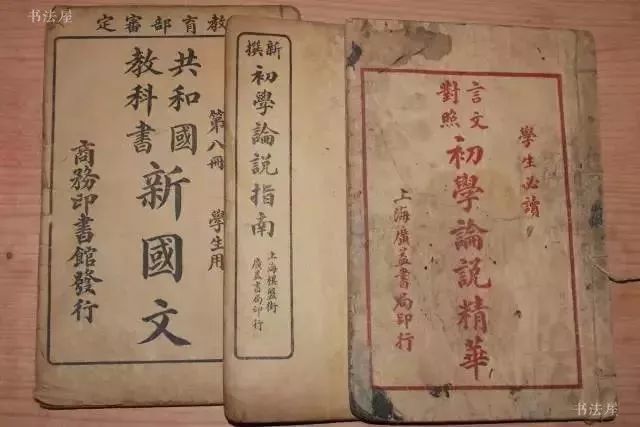 书法屋
定審部育教
共和國
教科書
新國文
第八冊
學生用
商務印書館發行
新撰
初學論説指南
上海棋盤街
廣益書局印行
言文
對照
初學論説精華
學生必讀
上海廣益書局印行
书法屋
书法屋